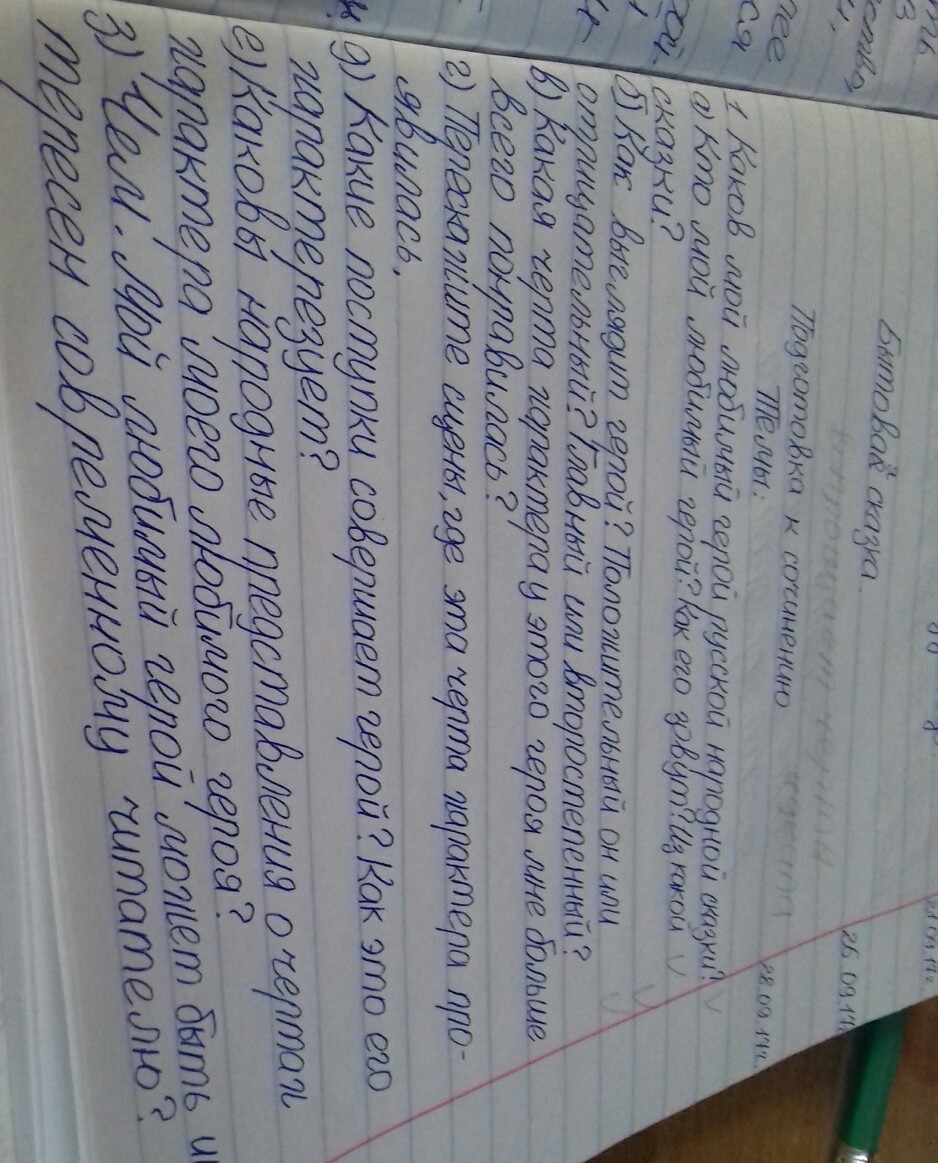 26.09.17г.
Бытовая сказка.
28.09.17г.
Подготовка к сочинению
Темы:
1 Каков мой любимый герой русской народной сказки?
а) Кто мой любимый герой? Как его зовут? Из какой
сказки?
б) Как выглядит герой? Положительный он или
отрицательный? Главный или второстепенный?
в) Какая черта характера у этого героя мне больше
всего понравилась?
г) Перескажите сцены, где эта черта характера про-
явилась.
д) Какие поступки совершает герой? Как это его
характерезует?
е) Каковы народные представления о чертах
характера моего любимого героя?
з) Чем. Мой любимый герой может быть и
тересен современному читателю?